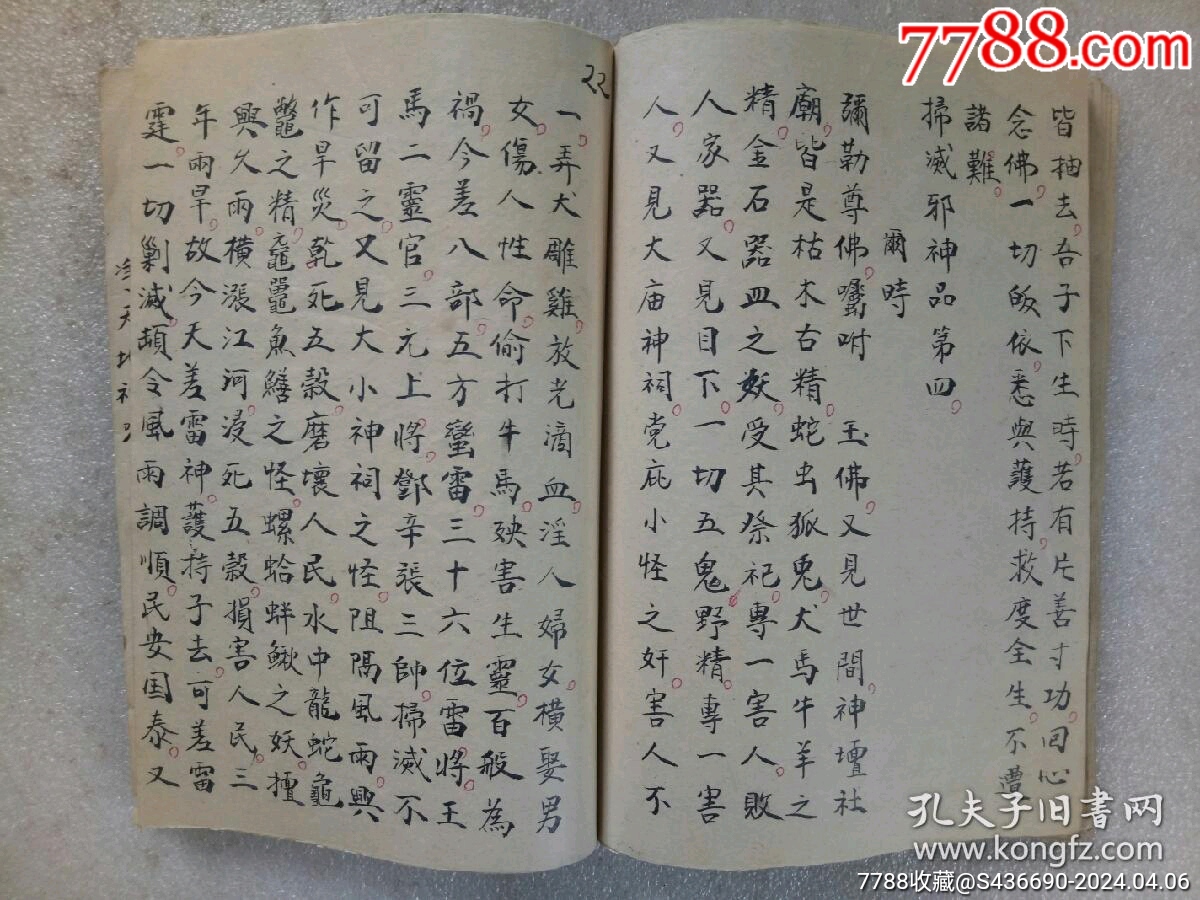 7788.com
皆抽去。吾子下生時。若有片善寸功。回心
念佛。一切皈依。悉與護持。救度全生。不遭
諸難。
掃滅邪神品第四。
爾時
彌勒尊佛。囑咐 玉佛。又見世間。神壇社
廟。皆是枯木古精。蛇虫狐兎。犬馬牛羊之
精。金石器皿之妖。受其祭祀。專一害人。敗
人家器。又見目下。一切五鬼野精。專一害
人。又見大庙神祠。党庇小怪之奸。害人不
22
一。弄犬雕雞。放光滴血。淫人婦女。橫娶男
女。傷人性命。偷打牛馬。殃害生靈。百般為
禍。今差八部。五方蠻雷。三十六位雷將。王
馬二靈官。三元上將。鄧辛張三帥。掃滅不
可留之。又見大小神祠之怪。阻隔風雨。興
作旱災。乾死五穀。磨壞人民。水中龍蛇龜
鱉之精。黿鼉魚鱔之怪。螺蛤蚌鰍之妖。擅
興久雨。橫漲江河。浸死五穀。損害人民。三
年兩旱。故今天差雷神。護持子去。可差雷
霆。一切剿滅。頡令風雨調順。民安国泰。又
孔夫子旧書网
www.kongfz.com
7788收藏@S436690-2024.04.06